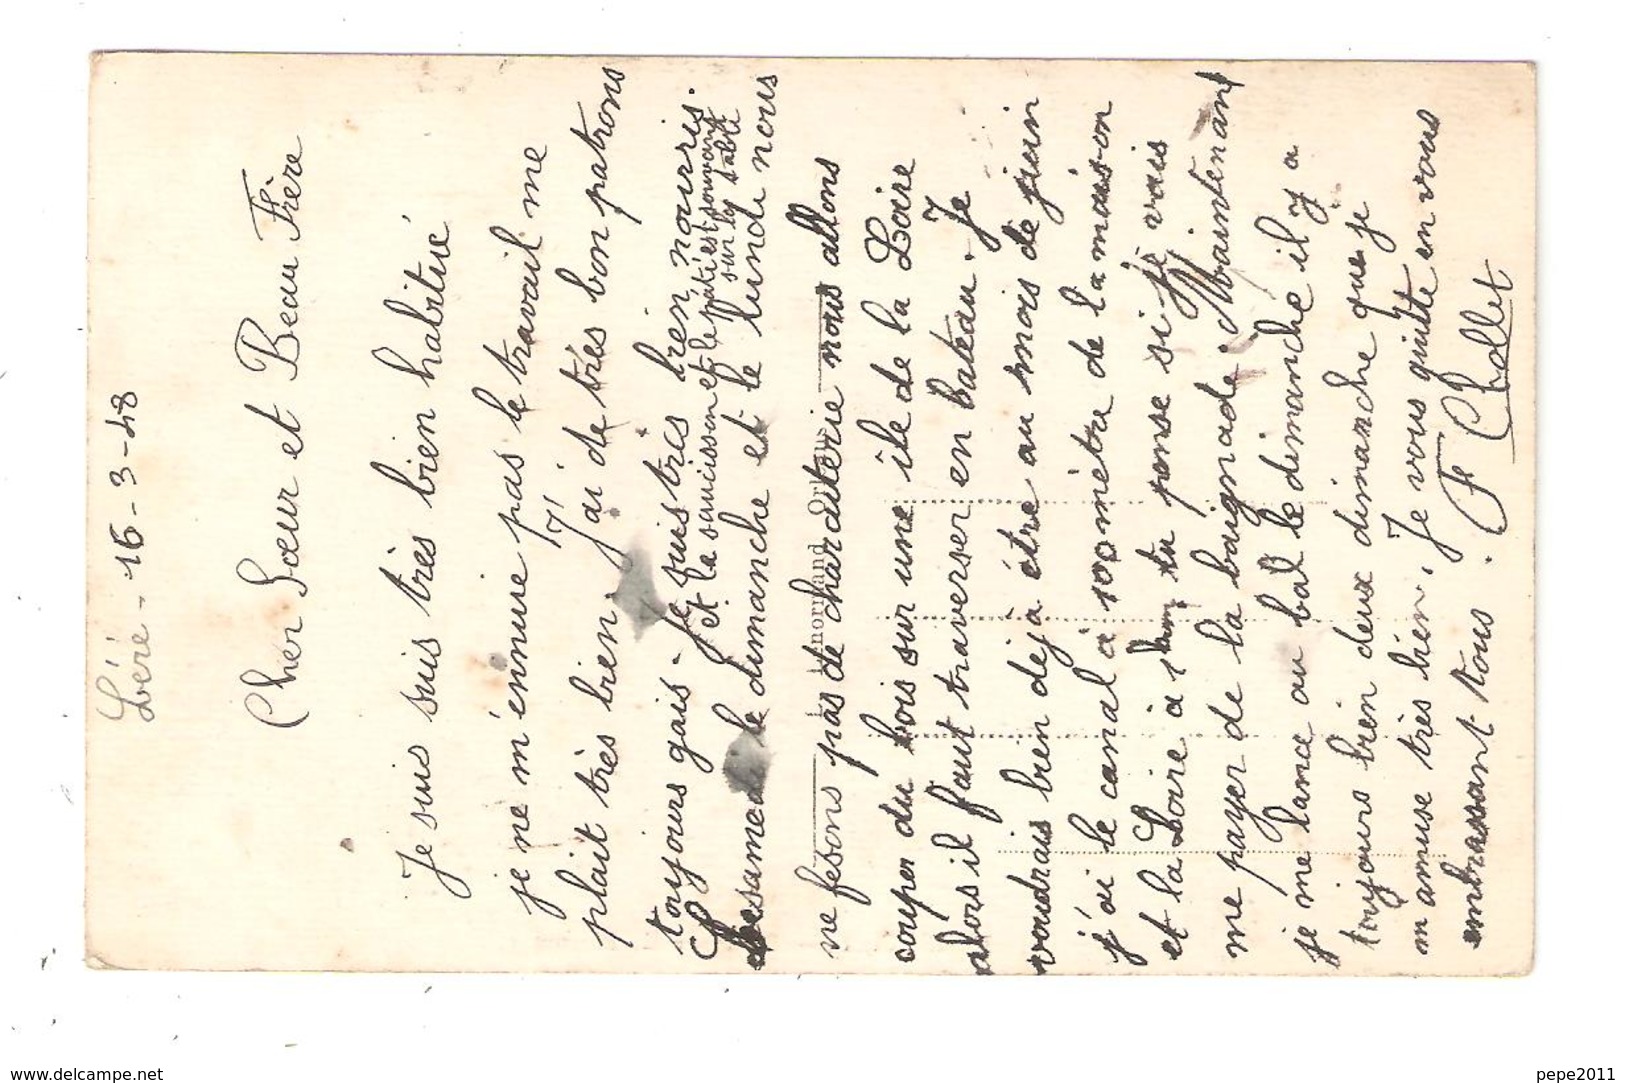 Léré - 16-3-48
Cher Sœur et Beau Frère
Je suis suis très bien habitué
je ne m'ennuie pas le travail me
plait très bien. J'ai de très bon patrons
toujours gais. Je suis très bien nourris.
et la saucisson et le pâté est souvant
sur la table
Le samedi le dimanche et le lundi nous
ne fesons pas de charcuterie nous allons
couper du bois sur une île de la Loire
alors il faut traverser en bateau. Je
voudrais bien déjà être au mois de juin
j'ai le canal à 100 mètre de la maison
et la Loire à 1 km tu pense si je vais
me payer de la baignade. Maintenant
je me lance au bal le dimanche il y a
toujours bien deux dimanche que je
m amuse très bien. Je vous quitte en vous
embrassant tous. F Chollet
Lenormand Orléans
www.delcampe.net
pepe2011